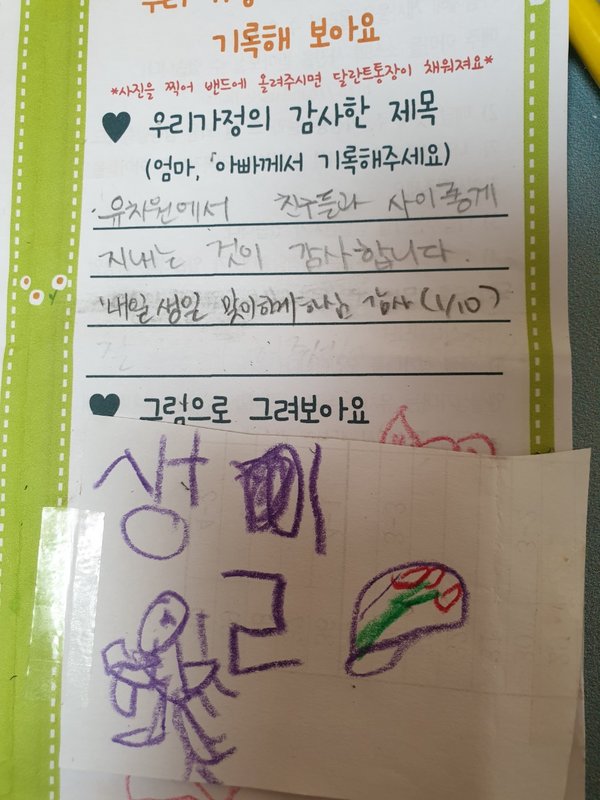 우리
기록해 보아요
*사진을 찍어 밴드에 올려주시면 달란트통장이 채워져요*
우리가정의 감사한 제목
(엄마, 아빠께서 기록해주세요)
유치원에서 친구들과 사이좋게
지내는 것이 감사합니다.
내일 생일 맞이하게하심 감사 (1/10)
그림으로 그려보아요
상